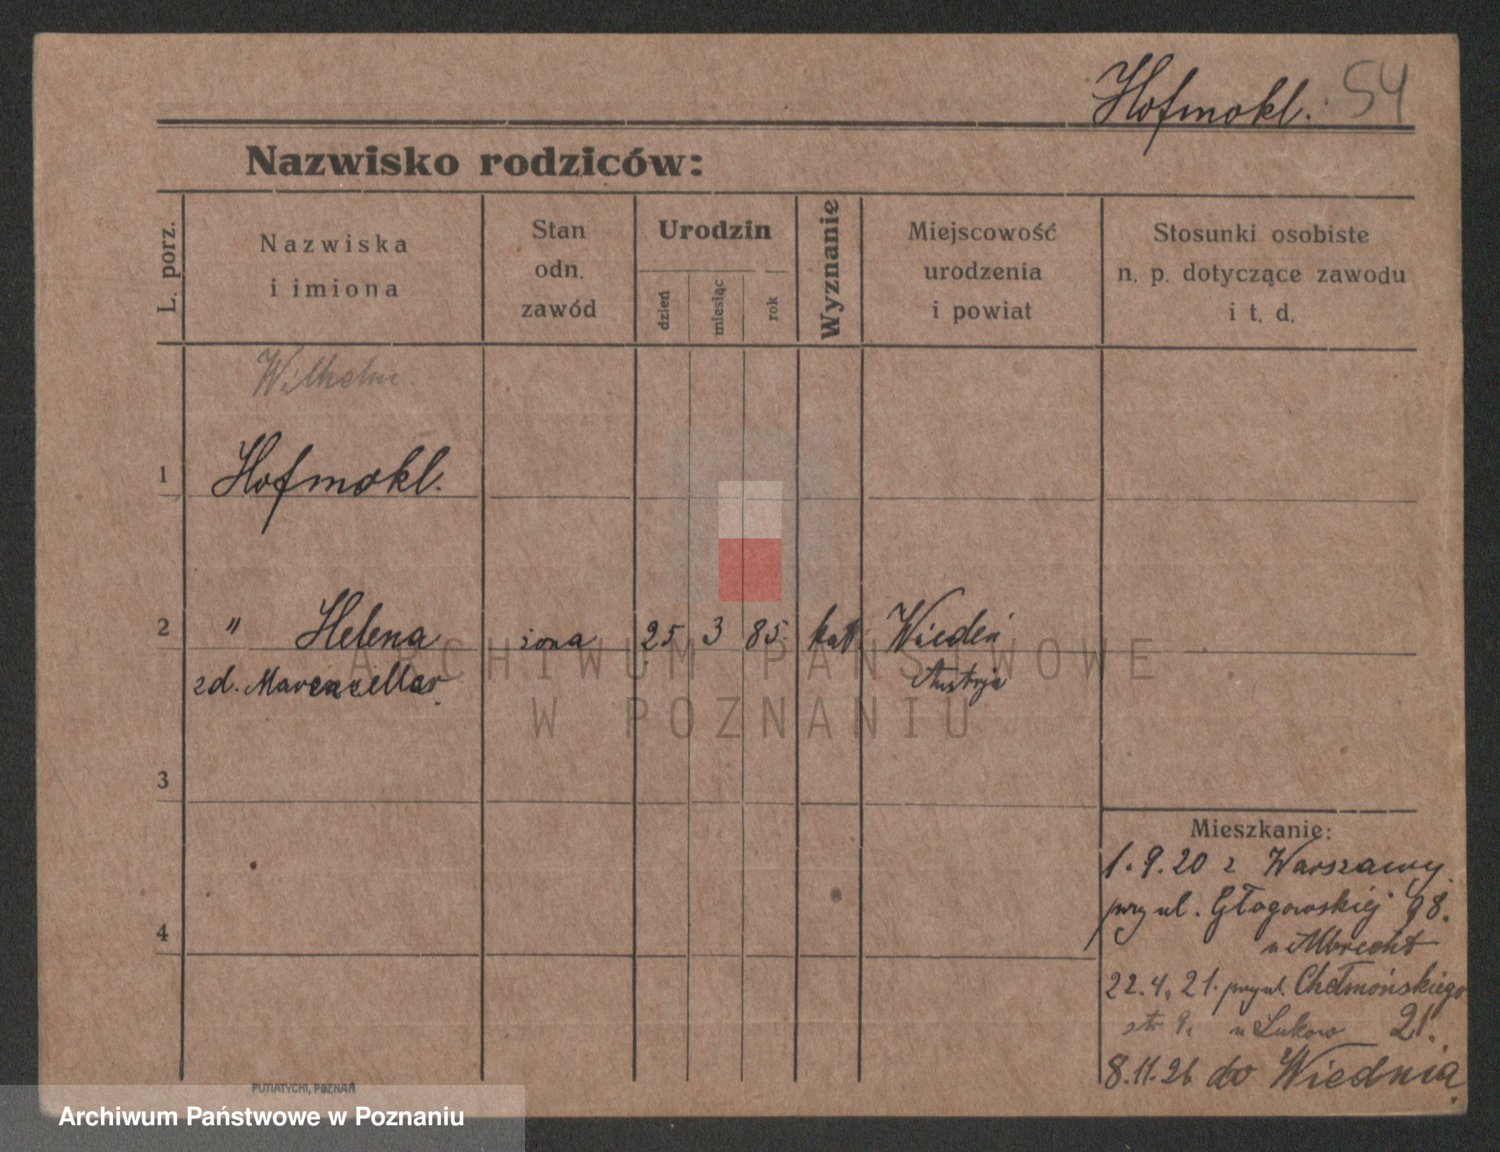 Hofmokl. 54
Nazwisko rodziców:
L. porz.
Nazwiska
i imiona
Stan
odn.
zawód
Urodzin
dzień
miesiąc
rok
Wyznanie
Miejscowość
urodzenia
i powiat
Stosunki osobiste
n. p. dotyczące zawodu
i t. d.
Wilhelm
1 Hofmokl.
2 " Helena żona 25 3 85. kat. Wiedeń
zd. Marenzellar. Austrja
3
4
Mieszkanie:
1.9.20 z Warszawy.
przy ul. Głogowskiej 98.
u Albrecht
22.4.21. przy ul. Chełmońskiego
21.
8.11.26 do Wiednia.
PUTIATYCKI, POZNAŃ
ARCHIWUM PAŃSTWOWE
W POZNANIU
Archiwum Państwowe w Poznaniu